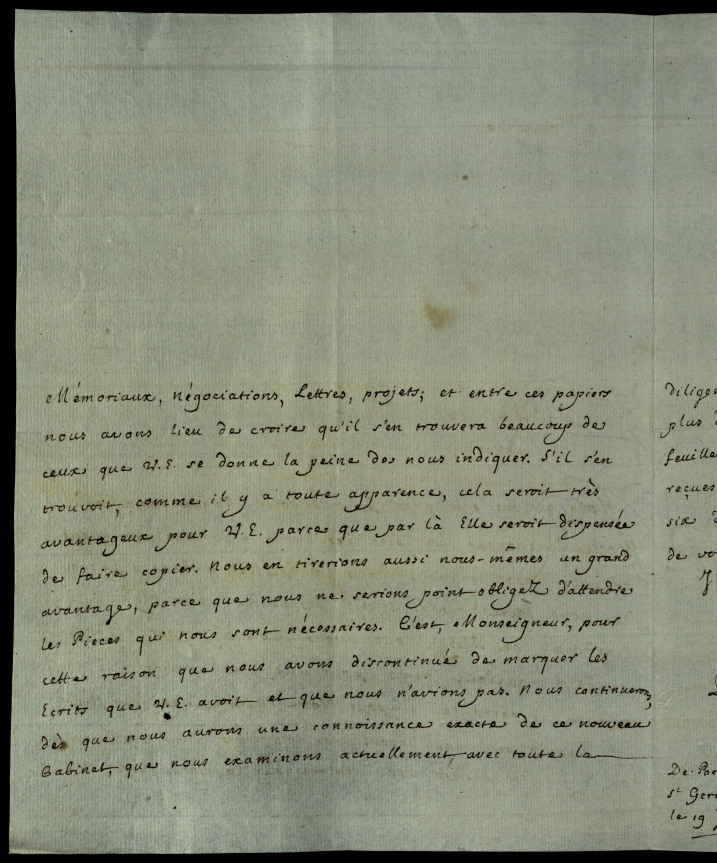 Mémoriaux, négociations, Lettres, projets; et entre ces papiers
nous avons lieu de croire qu'il s'en trouvera beaucoup de
ceux que V.E. se donne la peine de nous indiquer. S'il s'en
trouvoit, comme il y a toute apparence, cela seroit très
avantageux pour V.E. parce que par là Elle seroit dispensée
de faire copier. Nous en tirerions aussi nous-mêmes un grand
avantage, parce que nous ne serions point obligez d'attendre
les Pieces qui nous sont nécessaires. C'est, Monseigneur, pour
cette raison que nous avons discontinué de marquer les
Ecrits que V.E. avoit et que nous n'avions pas. Nous continuerons,
dès que nous aurons une connoissance exacte de ce nouveau
Cabinet, que nous examinons actuellement avec toute la
diligen
plus
feuille
reçues
six
de vo
De Par
St Ger
le 19